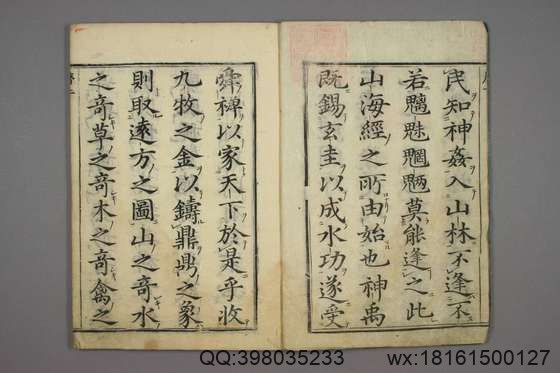 民知神姦入山林不逢不
若魑魅魍魎莫能逢之此
山海經之所由始也神禹
既錫玄圭以成水功遂受
舜禅以家天下於是乎收
九牧之金以鑄鼎鼎之象
則取遠方之圖山之奇水
之奇草之奇木之奇禽之
QQ:398035233
wx:18161500127